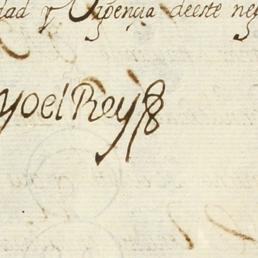 dad y Urgencia deeste neg
yoel Rey